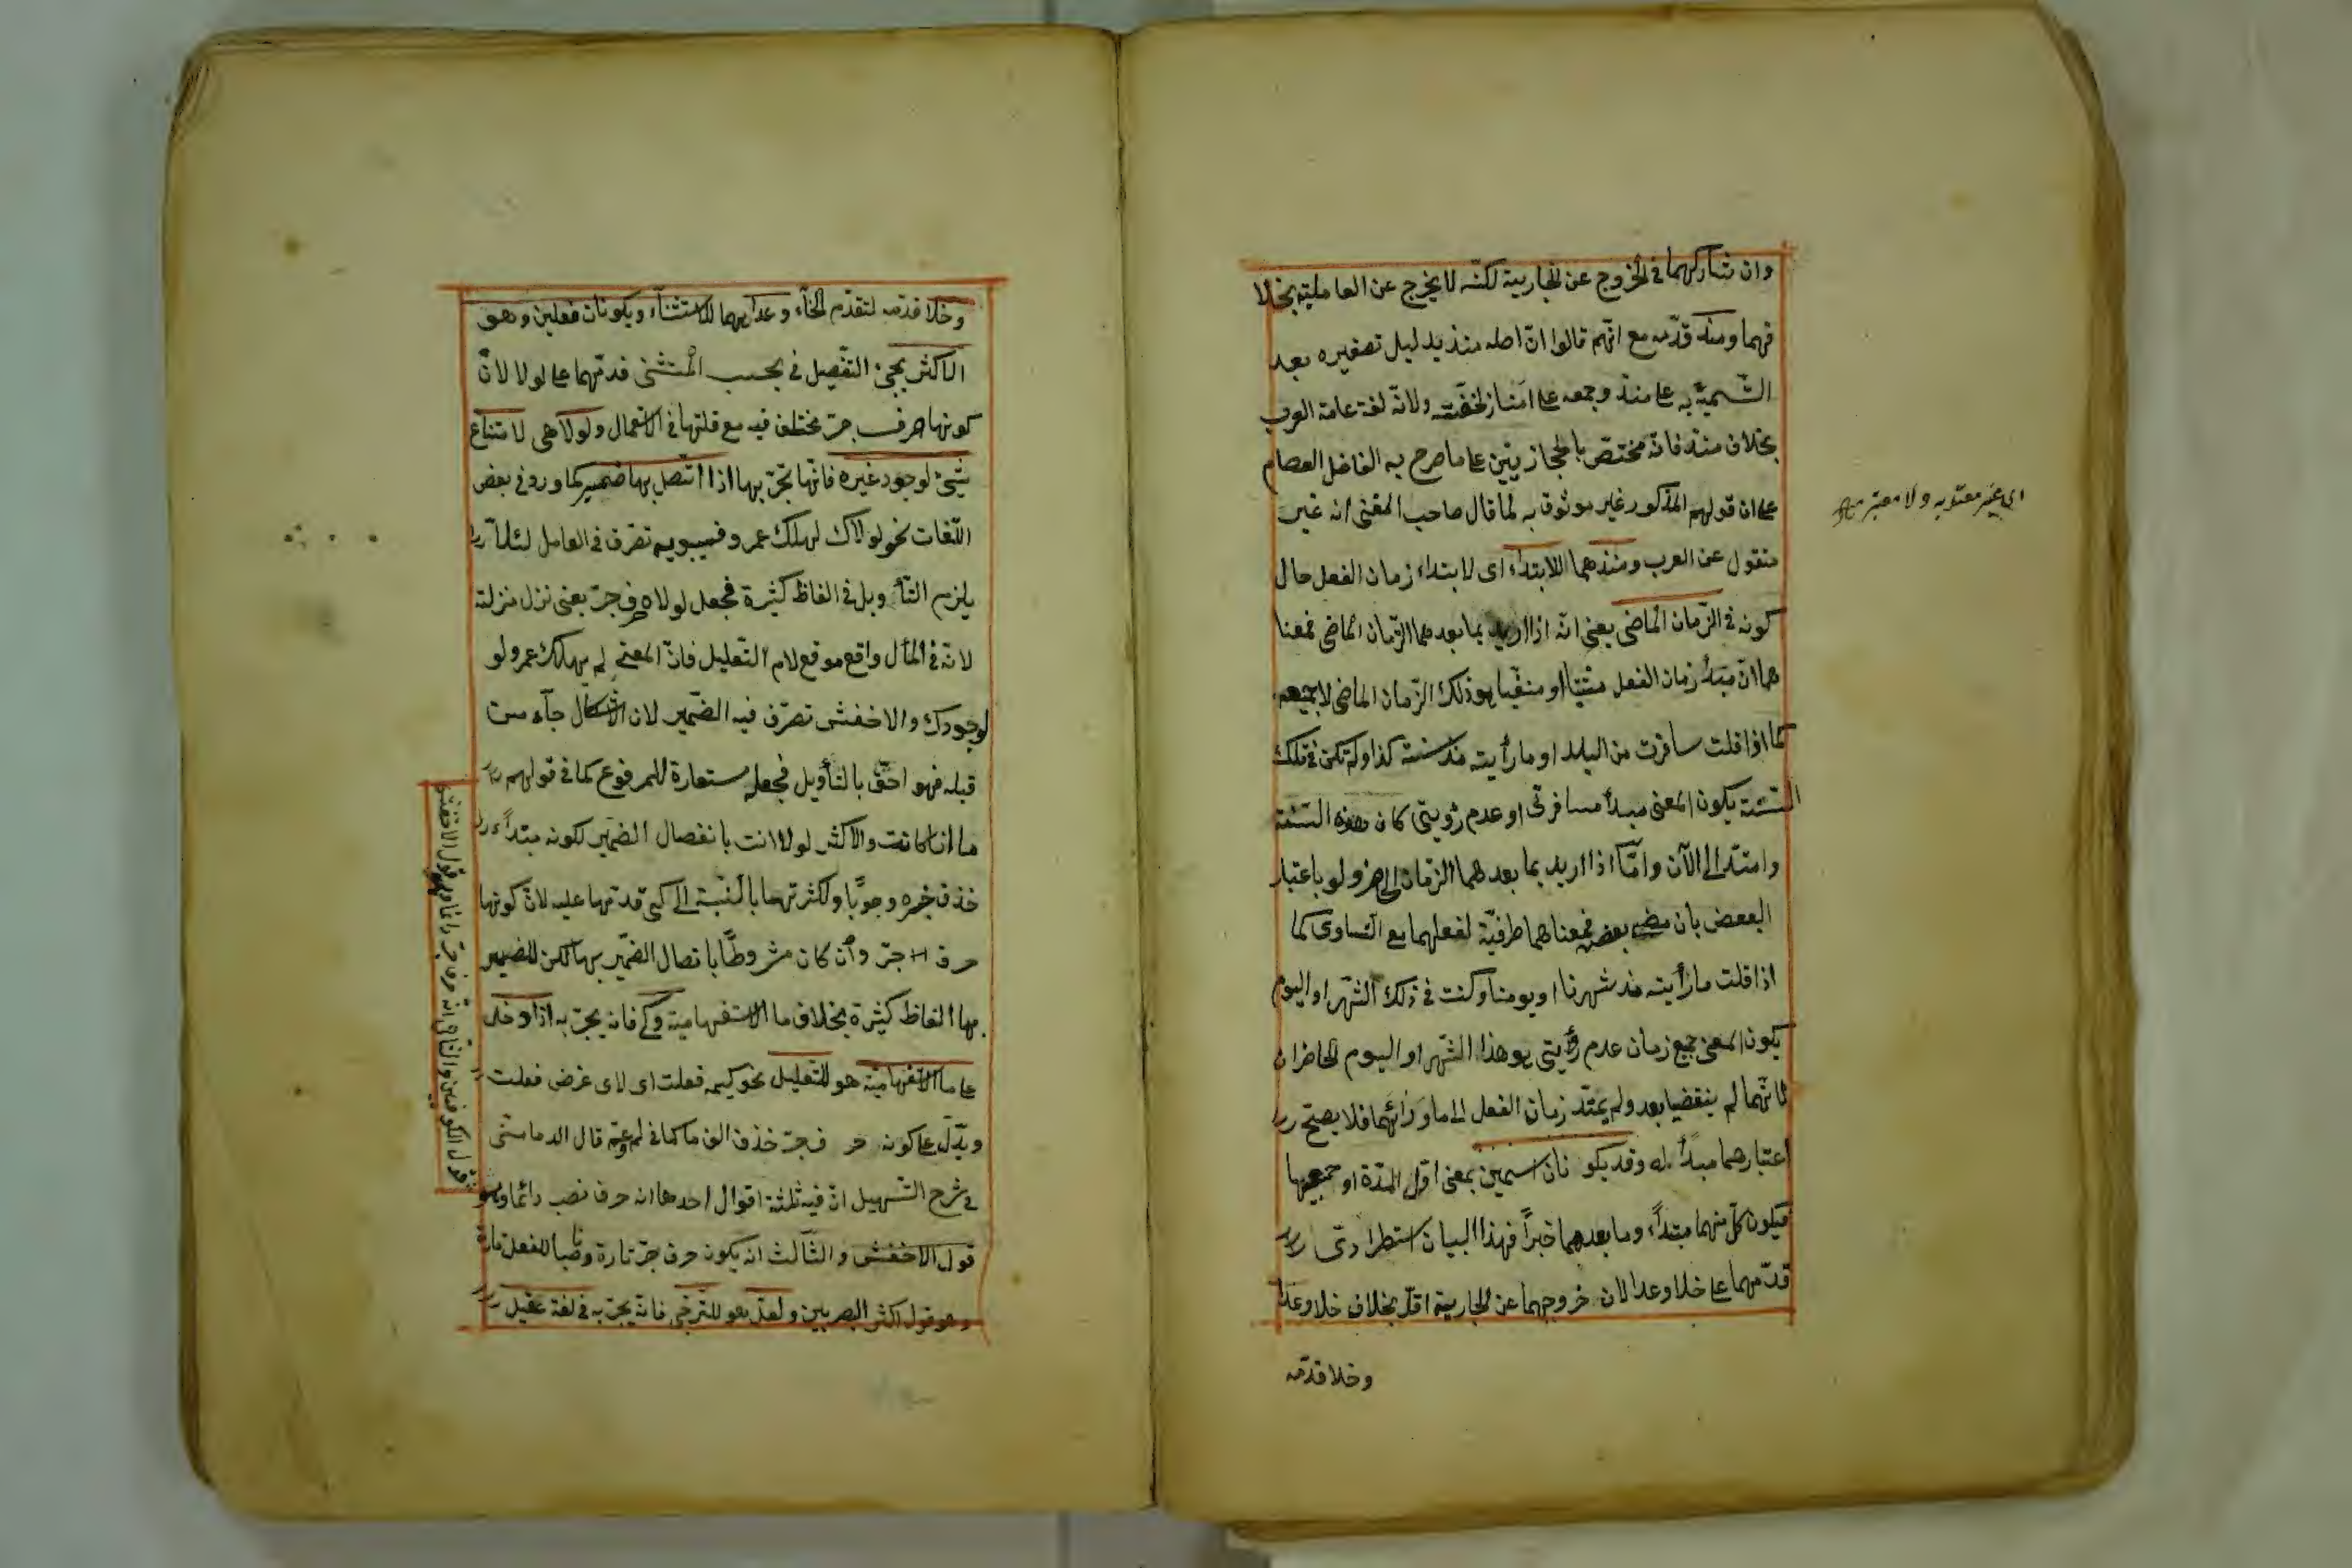 وان شاركهما في الخروج عن الجارية لكنّه لا يخرج عن العاملية بخلا
فهما ومنذ قدّمه مع انّهم قالوا انّ اصله منذ بدليل تصغيره بعد
التّسمية به على منيذ وجمعه على امناذ لخفّته ولانّه لغة عامة العرب
بخلاف منذ فانّه مختصّ بالحجازيّين على ما صرح به الفاضل العصام
على ان قولهم المذكور غير موثوق به لما قال صاحب المغني انه غير
منقول عن العرب ومنذ هما للابتداء اى لابتداء زمان الفعل حال
كونه في الزّمان الماضى يعنى انّه اذا اريد بما بعدهما الزّمان الماضى فمعنا
هما انّ مبدأ زمان الفعل مثبتا او منفيا هو ذلك الزّمان الماضى لا جميعه
كما اذا قلت سافرت من البلد او ما رأيته مذ سنة كذا ولم تكن في تلك
السّنة يكون المعنى مبدأ مسافرتى او عدم رؤيتى كان هذه السّنة
وامتدّ الى الآن وامّا اذا اريد بما بعدهما الزّمان الحاضر ولو باعتبار
البعض بان مضى بعضه فمعناهما ظرفيّة لفعلهما مع التّساوى كما
اذا قلت ما رأيته مذ شهرنا او يومنا وكنت في ذلك الشّهر او اليوم
يكون المعنى جميع زمان عدم رؤيتى هو هذا الشّهر او اليوم الحاضران
فانّهما لم ينقضيا بعد ولم يمتدّ زمان الفعل الى ما ورائهما فلا يصحّ
اعتبارهما مبدأ له وقد يكونان اسمين بمعنى اوّل المدّة او جميعها
فيكون كلّ منهما مبتدأ وما بعدهما خبراً فهذا البيان استطرادى
قدّمهما على خلا وعدا لان خروجهما عن الجارية اقلّ بخلاف خلا وعدا
وخلا قدّمه
اى غير معتد به ولا معتبر
وخلا قدّمه لتقدّم الخآء وعدا هما للاستثنآء ويكونان فعلين وهو
الاكثر يجئ التّفصيل في بحث المستثنى قدّمهما على لولا لانّ
كونها حرف جرّ مختلف فيه مع قلتها في الاستعمال ولولا هى لامتناع
شئ لوجود غيره فانّها تجرّ بها اذا اتّصل بها ضمير كما ورد في بعض
اللّغات نحو لولاك لهلك عمرو فسيبويه تصرّف في العامل لئلّا
يلزم التّأويل في الفاظ كثيرة فجعل لولا حرف جرّ يعنى نزل منزلته
لانّه في المأل واقع موقع لام التّعليل فانّ المعنى لم يهلك عمرو لو
لوجودك والاخفش تصرّف فيه الضّمير لان الاشكال جآء من
قبله فهو احقّ بالتأويل فجعله مستعارة للمرفوع كما في قولهم
ما انا كانت والاكثر لولا انت بانفصال الضّمير لكونه مبتدأ
حذف خبره وجوبًا ولكثرتهما بالنّسبة الى كى قدّمها عليه لانّ كونها
حرف جرّ وان كان مشروطًا باتصال الضّمير بها لكن للضمير
بها الفاظ كثيرة بخلاف ما الاستفهامية وكى فانه يجرّ به اذا دخل
على ما الاستفهاميّة هو للتّعليل نحو كيمه فعلت اى لاى غرض فعلت
ويدلّ على كونه حرف جرّ حذف الف ما كما في لم وعمّ قال الدمامينى
في شرح التّسهيل انّ فيه ثلثة اقوال احدها انه حرف نصب دائما وهو
قول الاخفش والثّالث ان يكون حرف جرّ تارة وناصبا للفعل تارة
وهو قول اكثر البصريين ولعلّ هو للتّرجى فانّه يجرّ به في لغة عقيل
قول الكوفيين والثّانى انّه حرف جرّ دائما وهو قول الاخفش